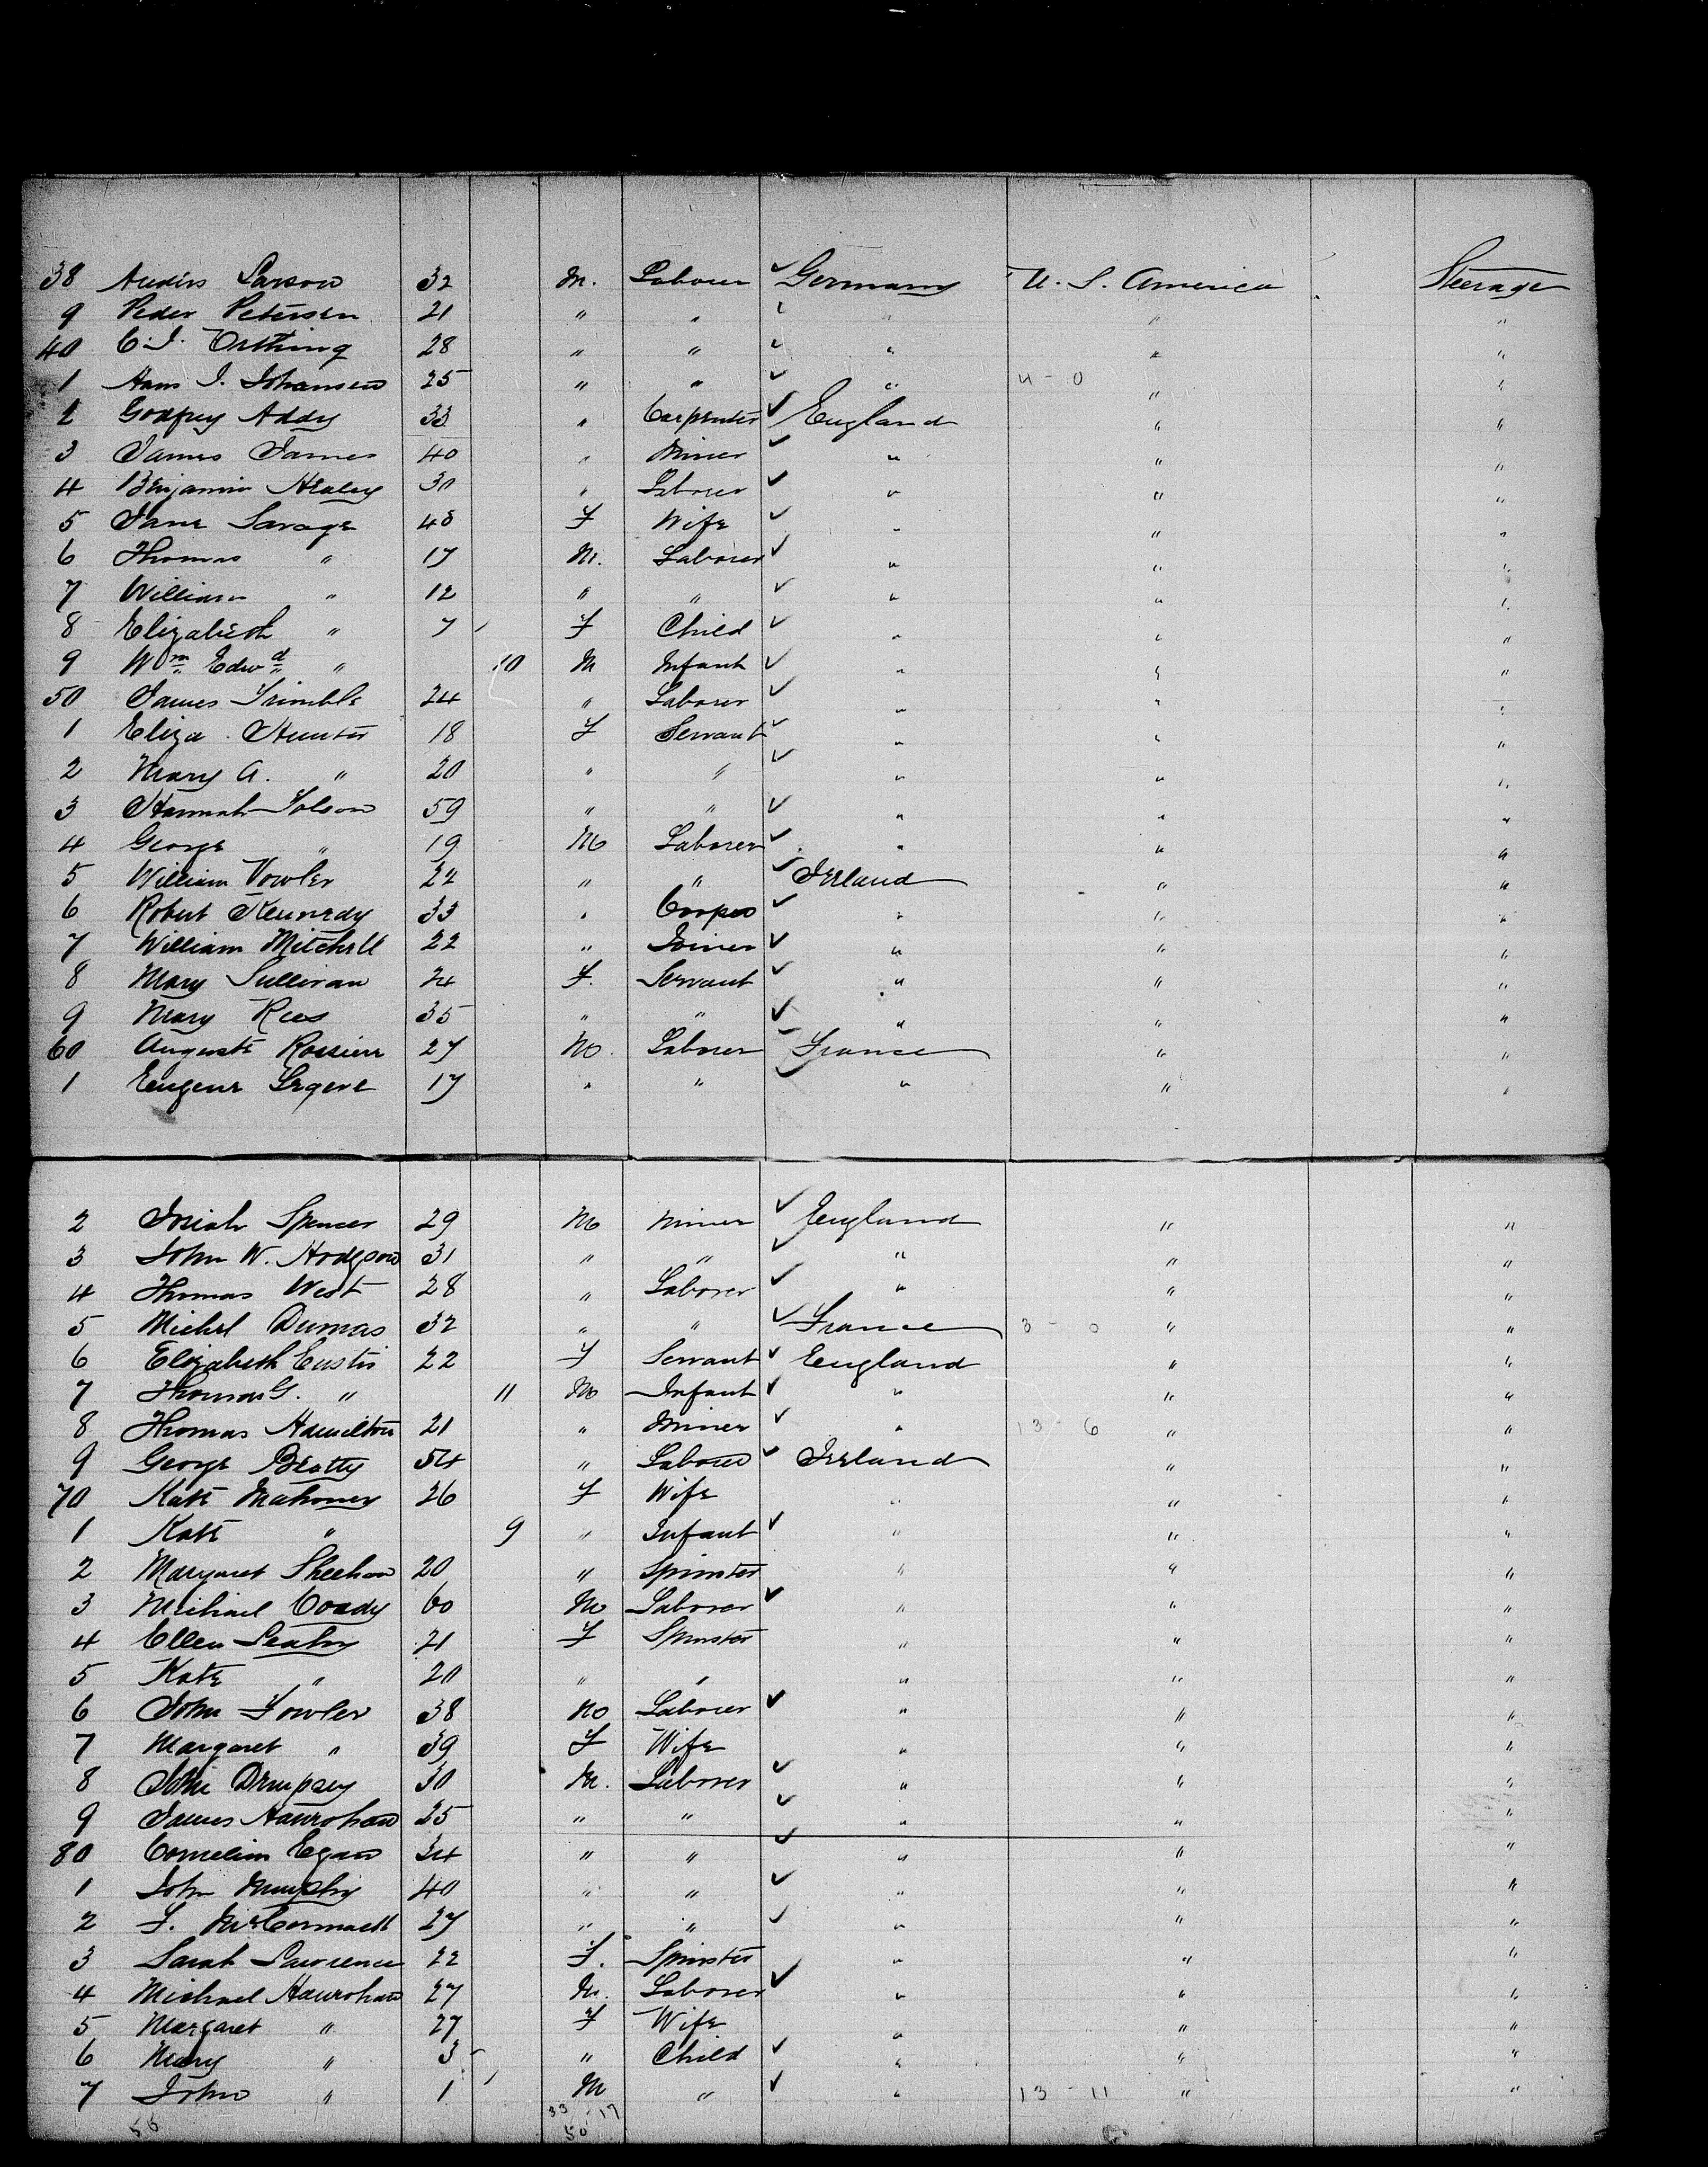 38 Anders Larson 32 M. Laborer ✓ Germany U. S. America Steerage
9 Peder Petersen 21 " " ✓ " " "
40 C. J. Orthing 28 " " ✓ " " "
1 Hans J. Johansen 25 " " ✓ " 4 - 0 " "
2 Godfrey Addy 33 " Carpenter ✓ England " "
3 James James 40 " Miner ✓ " " "
4 Benjamin Healey 30 " Laborer ✓ " " "
5 Jane Savage 48 F Wife ✓ " " "
6 Thomas " 17 M. Laborer ✓ " " "
7 William " 12 " " ✓ " " "
8 Elizabeth " 7 F Child ✓ " " "
9 Wm Edwd " 10 M Infant ✓ " " "
50 James Trimble 24 " Laborer ✓ " " "
1 Eliza Hunter 18 F Servant ✓ " " "
2 Mary A. " 20 " " ✓ " " "
3 Hannah Tolson 59 " " ✓ " " "
4 George " 19 M Laborer ✓ " " "
5 William Vowler 22 " " ✓ Ireland " "
6 Robert Kennedy 33 " Cooper ✓ " " "
7 William Mitchell 22 " Joiner ✓ " " "
8 Mary Sullivan 24 F. Servant ✓ " " "
9 Mary Rees 35 " " ✓ " " "
60 Auguste 27 M. Laborer France " "
1 Eugene 17 " " ✓ " " "
2 Josiah Spencer 29 M Miner ✓ England " "
3 John W. Hodgson 31 " " ✓ " " "
4 Thomas West 28 " Laborer ✓ " " "
5 Michel Dumas 32 " " ✓ France 3 - 0 " "
6 Elizabeth Eustis 22 F Servant ✓ England " "
7 Thomas G. " 11 M Infant ✓ " " "
8 Thomas Hamilton 21 " Miner ✓ " 13 - 6 " "
9 George Beatty 54 " Laborer ✓ Ireland " "
70 Kate Mahoney 26 F Wife " " "
1 Kate " 9 " Infant ✓ " " "
2 Margaret Sheehan 20 " Spinster " " "
3 Michael Coady 60 M Laborer ✓ " " "
4 Ellen Leahy 21 F Spinster " " "
5 Kate " 20 " " " " "
6 John Fowler 38 M Laborer ✓ " " "
7 Margaret " 39 F Wife " " "
8 John Dempsey 30 M. Laborer ✓ " " "
9 James Hanrohan 25 " " ✓ " " "
80 Cornelius Egan 34 " " ✓ " " "
1 John Murphy 40 " " ✓ " " "
2 F. McCormack 27 " " ✓ " " "
3 Sarah Lawrence 22 F. Spinster " " "
4 Michael Hanrohan 27 M. Laborer ✓ " " "
5 Margaret " 27 F Wife " " "
6 Mary " 3 " Child ✓ " " "
7 John " 1 M " ✓ " 13 - 11 " "
33 17
50